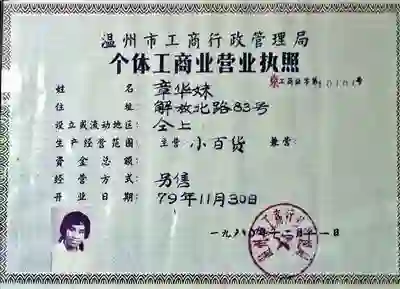 温州市工商行政管理局
个体工商业营业执照
工商证字第10101号
姓 名: 章华妹
住 址: 解放北路83号
设立或流动地区: 仝上
生产经营范围: 主营 小百货 兼营:
资金总额:
经营方式: 另售
开业日期: 79年11月30日
一九八〇年十二月十一日
温州市工商行政管理局